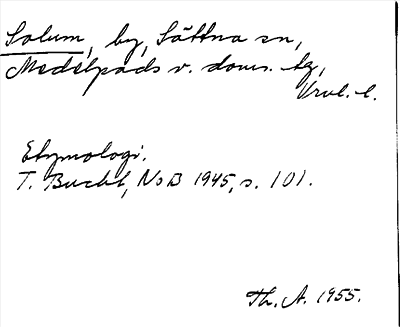 Solum, by, Sättna sn,
Medelpads v. doms. tg,
Vnl. l.
Etymologi.
T. Bucht, NoB 1945, s. 101.
Th. A. 1955.